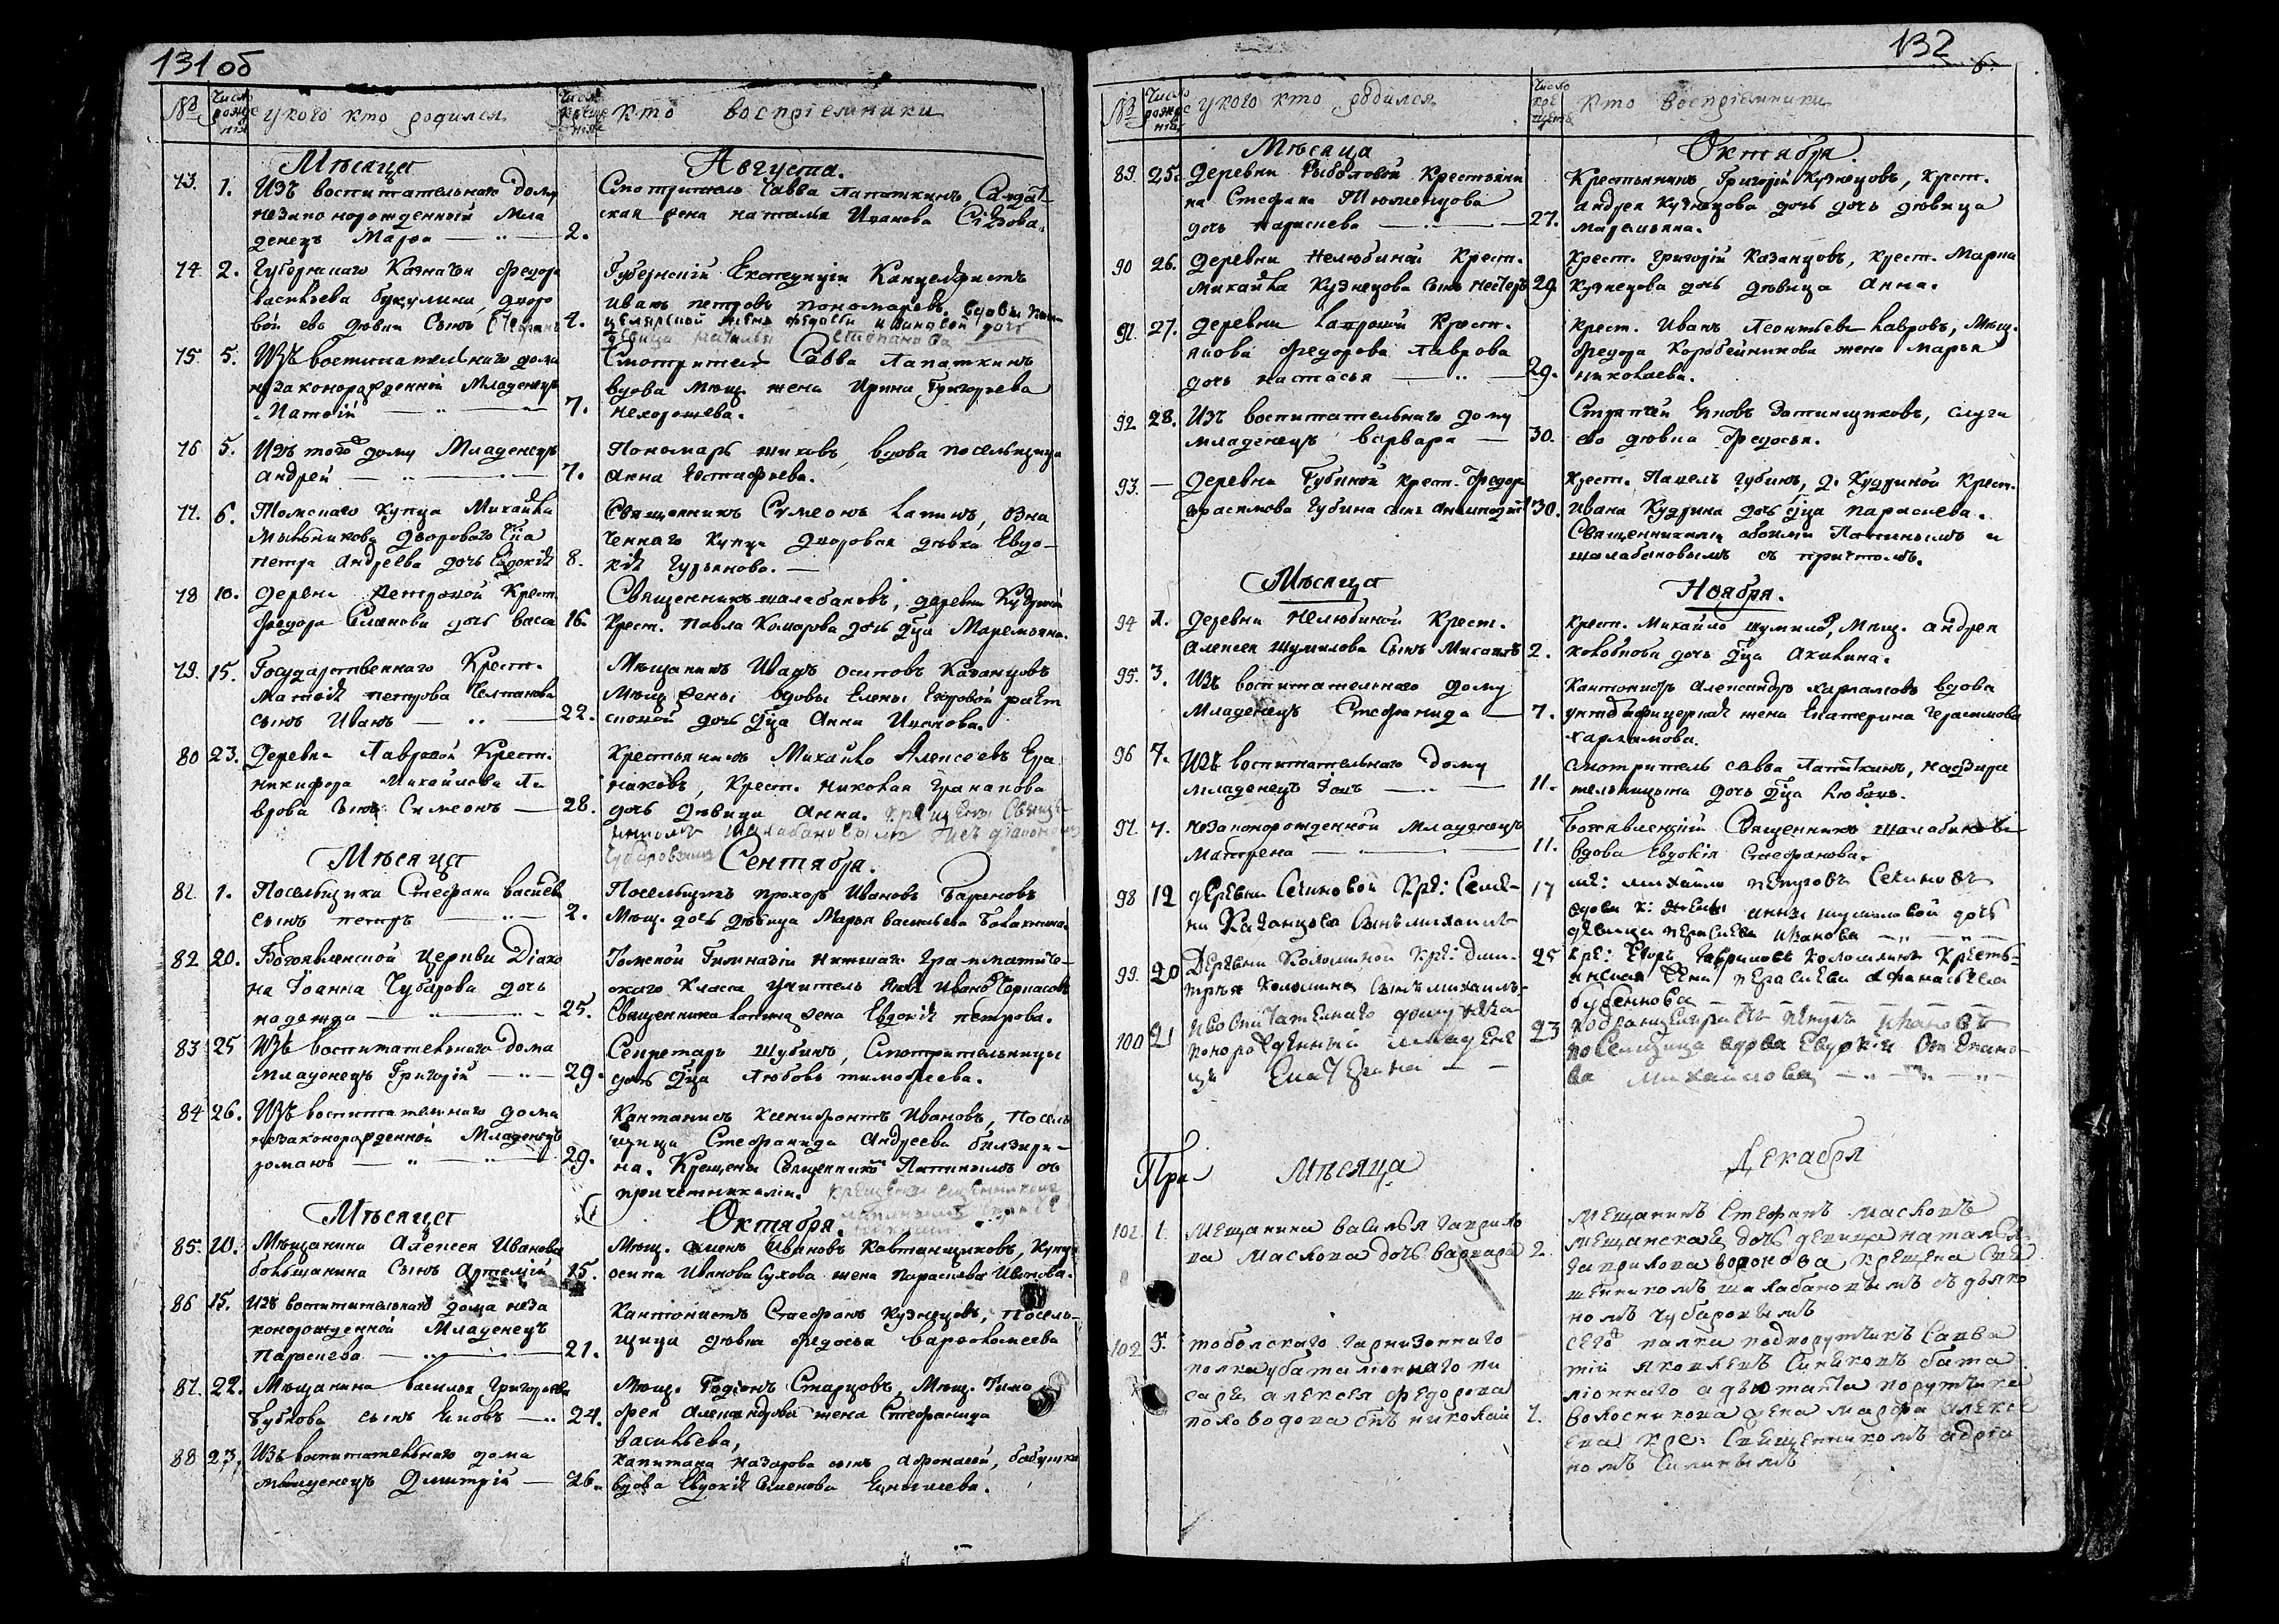 131 об
№ Число рожденія у кого кто родился Число крещенія кто воспріемники
Мѣсяца Августа.
73. 1. Изъ воспитательнаго дому
незаконорожденный мла
денецъ Марѳа 2.
Смотритель Савва Лапаткинъ, Салдат
ская жена наталья Иванова
74 2. Губернскаго Казначея федора
васильева дворо
вой ево дѣвки Сынъ Стефанъ 4.
Губернскій Екзекуціи Канцеляристъ
иванъ петровъ пономаревъ. вдовы кан
целярской жены федосьи ивановой дочь
девица наталья степанова
75. 5. Изъ воспитательнаго дома
незаконорожденной Младенецъ
7.
Смотритель Савва Лапаткинъ
вдова мѣщ. жена Ирина Григорьева
нехорошева.
76 5. Изъ того дому Младенецъ
андрей 7.
Пономарь шиховъ, вдова посельщица
анна Евстафьева.
77. 6. Томскаго купца Михайла
Мыльникова двороваго
петра Андреева дочь Евдокія 8.
Священникъ Сумеонъ Лапинъ, озна
ченнаго купца дворовая дѣвка Евдо-
кія Гурьянова.
78 10. деревни петровой Крест.
федора дочь васса 16.
Священникъ шалабановъ, деревни Кудриной
Крест. Павла Комарова дочь дца Маремьяна.
79. 15. Государственнаго Крест.
Матвѣя петрова Челпанова
сынъ Иванъ 22.
Мѣщанинъ Иванъ осиповъ Казанцовъ
Мѣщ. жены вдовы Елены
дочь дца Анна Иванова.
80 23. Деревни Лавровой Крест.
никифора Михайлова Ла
врова сынъ Симеонъ 28.
Крестьянинъ Михайло Алексеевъ Ера
наковъ, Крест. николая
дочь дѣвица Анна. Крещены Священ
никомъ Шалабановымъ діакономъ
Чубаровымъ
Мѣсяца Сентября.
81. 1. Посельщика Стефана василева
сынъ петръ 2.
Посельщикъ прохоръ Ивановъ Барановъ
Мѣщ. дочь дѣвица Марья васильева
82 20. Богоявленской церкви Діако
на Іоанна Чубарова дочь
надежда 25.
Томской Гимназіи нижшаго Грамматиче-
скаго класа учитель Иванъ
Священника Лапина жена Евдокія петрова.
83 25 Изъ воспитательнаго дома
младенецъ Григорій 29.
Секретарь Шубинъ, Смотрительницы
дочь дца Любовь тимофеева.
84 26. Изъ воспитательнаго дома
незаконорожденной Младенецъ
романъ 29.
Кантонисъ ксенифонтъ Ивановъ, посель
щица Стефанида Андреева
на. Крещены Священникомъ Лапинымъ съ
причетниками.
Мѣсяца Октября.
85. 10. Мѣщанина Алексея Иванова
больщанина Сынъ Артемій 15.
Мѣщ. Ивановъ Кавтанщиковъ, купца
осипа Иванова Сухова жена параскева Иванова.
86 15. Изъ воспитательнаго дома неза
конорожденной Младенецъ
параскева 21.
Кантонистъ Стефанъ Кузнецовъ, посель-
щица дѣвка федосья варфоломеева
87. 22. Мѣщанина василья Григорьева
Зубкова сынъ Іяковъ 24.
Мѣщ. Родіонъ Старцовъ, Мѣщ. Тимо
фея Александрова жена Стефанида
васильева,
88 23. Изъ воспитательнаго дома
младенецъ Димитрій 26.
капитана назарова сынъ Афонасей, бабушка
вдова Евдокія Семенова
132
6.
№ Число рожденія у кого кто родился Число крещенія кто воспріемники
Мѣсяца Октября.
89 25. деревни Рыболовой Крестьяни
на Стефана Тюменцова
дочь параскева 27.
Крестьянинъ Григорій Кузнецовъ, крест.
андрея Кузнецова дочь дочь дѣвица
маремьяна.
90 26. деревни нелюбиной Крест.
Михайла Кузнецова сынъ несторъ 29.
крест. григорій Казанцовъ, крест. Марка
Кузнецова дочь дѣвица Анна.
91. 27. деревни Лавровой Крест.
якова федорова Лаврова
дочь настасья 29.
крест. Иванъ Леонтьевъ Лавровъ, Мѣщ.
федора Коробейникова жена марья
николаева.
92 28. Изъ воспитательнаго дому
младенецъ варвара 30.
Стряпчей Іяковъ Затинщиковъ, слуги
ево дѣвка федосья.
93. — деревни Губиной Крест. федора
герасимова Губина сынъ 30.
крест. Павелъ Губинъ, д. Кудриной Крест.
ивана Кудрина дочь дца параскева.
Священниками обоими Лапинымъ и
шалабановымъ съ причтомъ.
Мѣсяца Ноября.
94 1. деревни нелюбиной Крест.
алексея шумилова Сынъ Михаилъ 2.
крест. Михайло шумилов, мѣщ. андрея
дочь дца Акилина.
95. 3. Изъ воспитательнаго дому
младенецъ Стефанида 7.
Кантонистъ александръ харламовъ вдова
унтеръ офицерская жена Екатерина Герасимова
харламова.
96 7. Изъ воспитательнаго дому
младенецъ 11.
смотритель савва Лапаткинъ, надзира
тельницына дочь дца Любовь.
97. 7. незаконорожденной младенецъ
матрена 11.
Богоявленскій Священникъ шалабановъ
вдова Евдокія Стефанова.
98 12 деревни Сечиновой кре: Семе-
на Казанцова Сынъ михаилъ 17
ме: михайло петровъ
вдовы к: жены анны шумиловой дочь
девица параскева иванова
99. 20 Деревни Коломиной кре: дми-
трея Коломина Сынъ михаилъ 25
кре: Егоръ Гавриловъ Коломинъ кресть-
янская жена параскева афанасьева
бубеннова
100 21 Изъ воспитательнаго дому неза
конорожденный младене
цъ Екатерина 23
петръ ивановъ
поселщица вдова Евдокія Степано-
ва михайлова
При Мѣсяца Декабря
102 1. мещанина василья гаврило
ва маслова дочь варвара 2
мещанинъ Стефанъ масловъ
мещанская дочь девица наталья
гаврилова воронова крещена Свя
щенникомъ шалабановымъ съ дьяко
номъ чубаровымъ
102 5. тобольскаго гарнизоннаго
полка баталіоннаго пи
саря алексея федорова
половодова сынъ николай 7.
сего полка подпорутчикъ Савва
тій яковлевъ Синяковъ бата
ліоннаго адъютанта порутчика
волосникова жена марфа алексе
ева кре: Священникомъ адріа
номъ Силинымъ